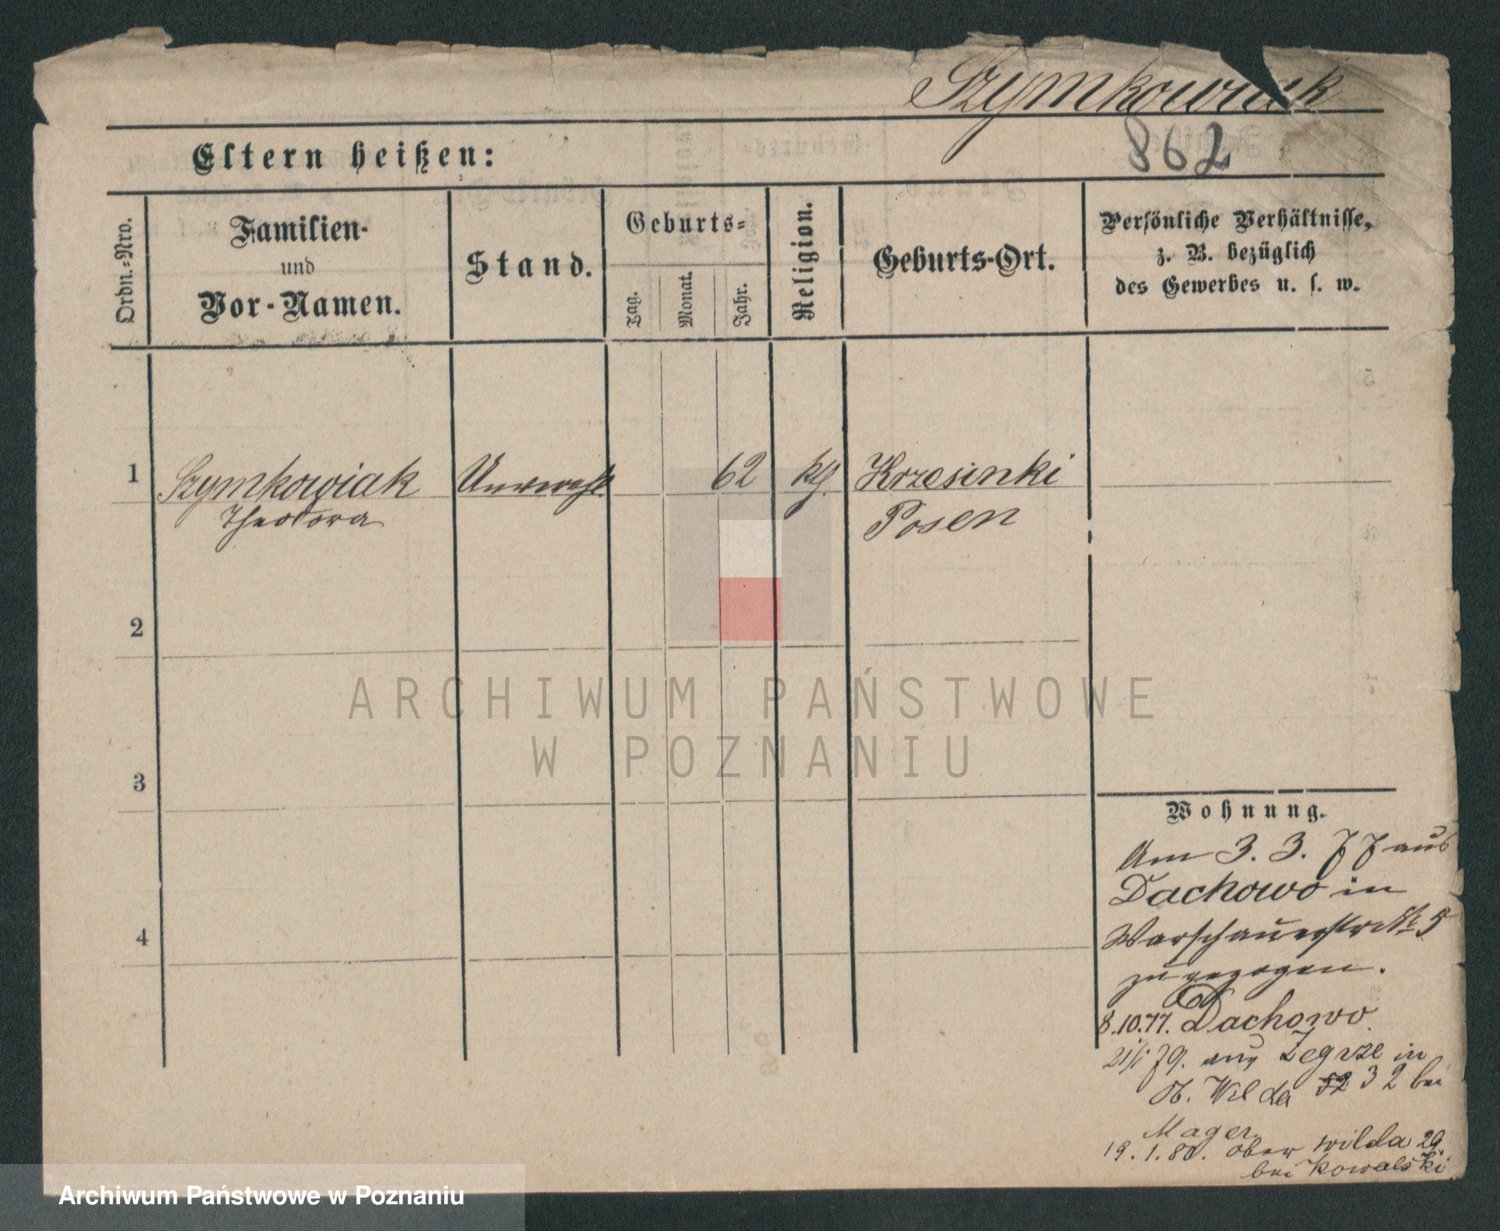 Szymkowiak
862
Eltern heißen:
Ordn.-Nro.
Familien-
und
Vor-Namen.
Stand.
Geburts-
Tag.
Monat.
Jahr.
Religion.
Geburts-Ort.
Persönliche Verhältnisse,
z. B. bezüglich
des Gewerbes u. s. w.
1
Szymkowiak
Theodora
Unvereh.
62
kth.
Krzesinki
Posen
2
3
4
Wohnung.
Am 3. 3. 77 aus
Dachowo in
Warschauerstr № 5
zugezogen.
8.10.77. Dachowo
79. aus Zegrze in
O. Wilda 32 bei
Mager
19.1.80. Ober wilda 29.
bei Kowalski
ARCHIWUM PAŃSTWOWE
W POZNANIU
Archiwum Państwowe w Poznaniu